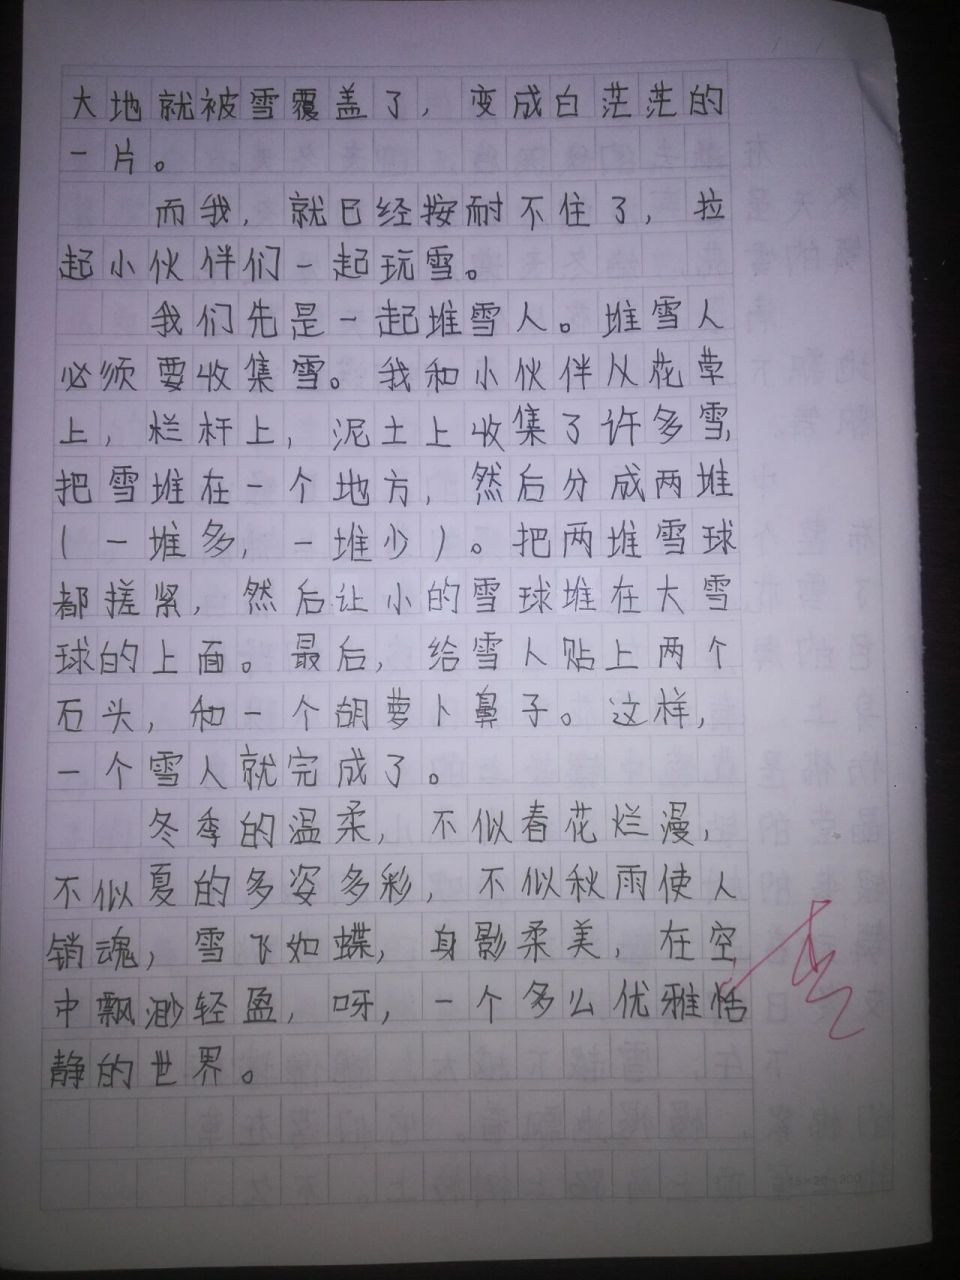 大地就被雪覆盖了，变成白茫茫的
一片。
而我，就已经按耐不住了，拉
起小伙伴们一起玩雪。
我们先是一起堆雪人。堆雪人
必须要收集雪。我和小伙伴从花草
上，栏杆上，泥土上收集了许多雪，
把雪堆在一个地方，然后分成两堆
（一堆多，一堆少）。把两堆雪球
都搓紧，然后让小的雪球堆在大雪
球的上面。最后，给雪人贴上两个
石头，和一个胡萝卜鼻子。这样，
一个雪人就完成了。
冬季的温柔，不似春花烂漫，
不似夏的多姿多彩，不似秋雨使人
销魂，雪飞如蝶，身影柔美，在空
中飘渺轻盈，呀，一个多么优雅恬
静的世界。